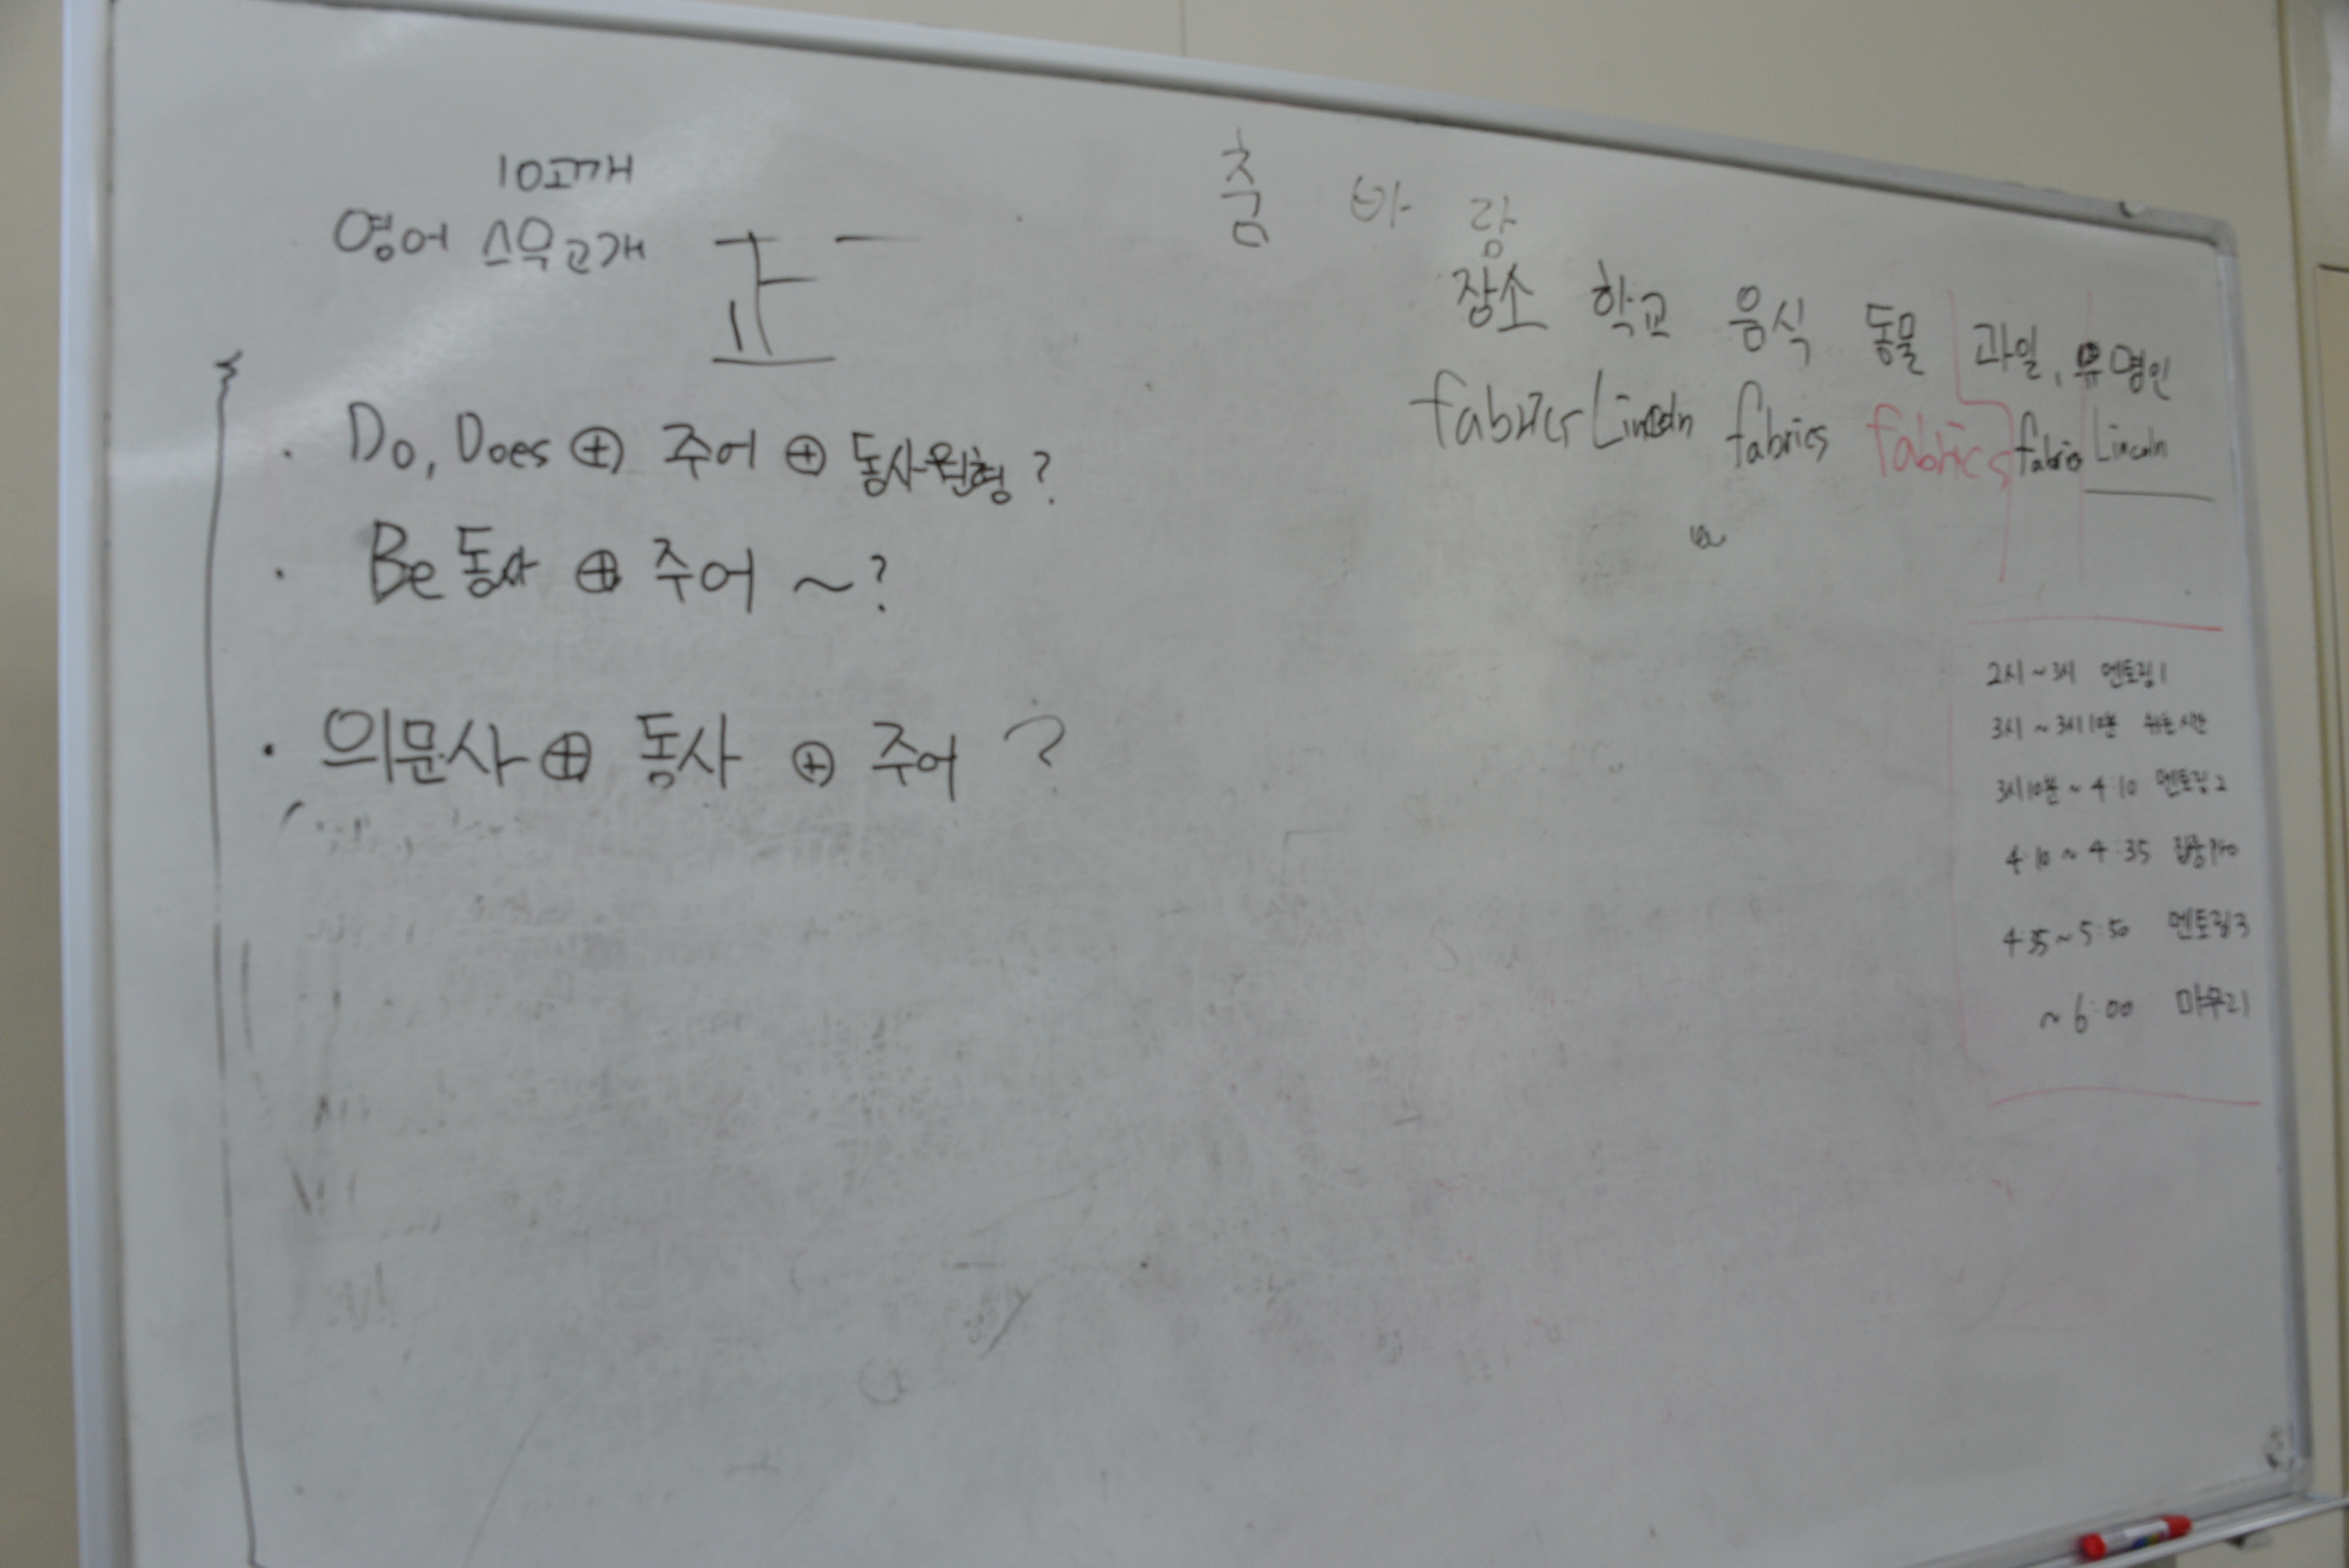 10고개
영어 스무고개 正 一
· Do, Does ⊕ 주어 ⊕ 동사원형?
· Be동사 ⊕ 주어 ~?
· 의문사 ⊕ 동사 ⊕ 주어 ?
춤 바 람
장소 학교 음식 동물 과일, 유명인
Lincoln fabrics fabrics fabric Lincoln
2시 ~ 3시 멘토링1
3시 ~ 3시10분 쉬는시간
3시10분 ~ 4:10 멘토링2
4:10 ~ 4:35
4:35 ~ 5:50 멘토링3
~ 6:00 마무리